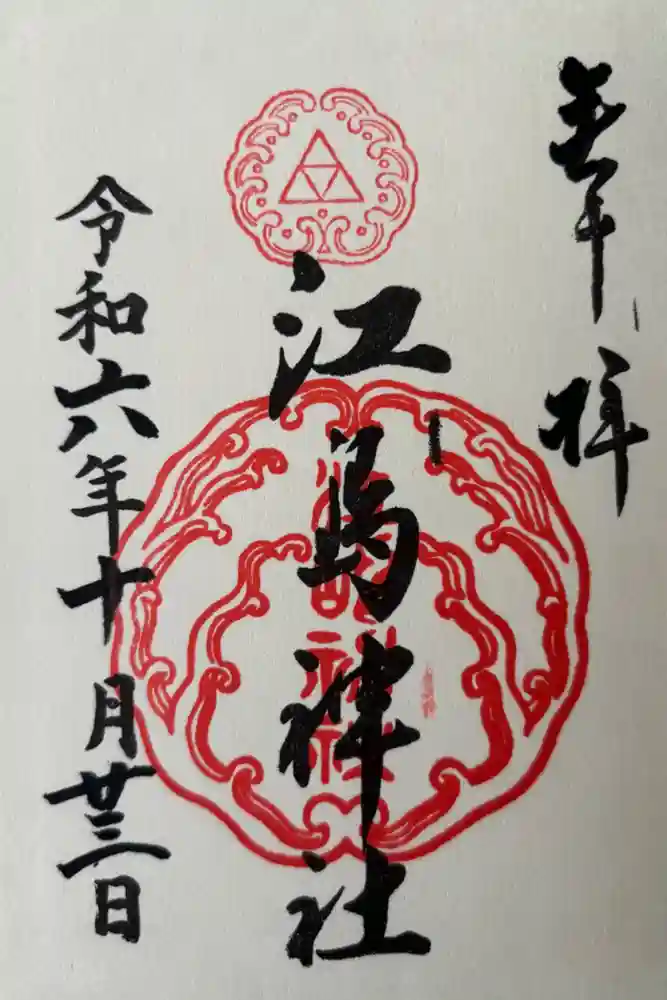 奉拝
江島神社
令和六年十月廿三日